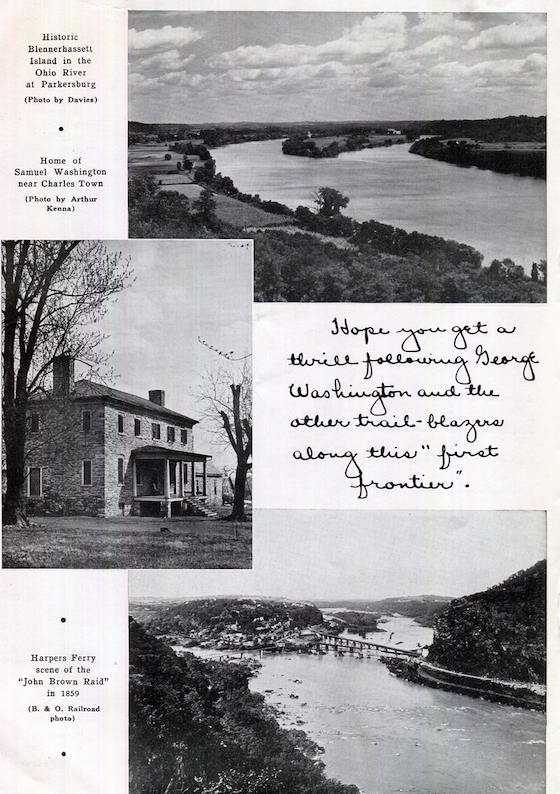 Historic
Blennerhassett
Island in the
Ohio River
at Parkersburg
(Photo by Davies)
Home of
Samuel Washington
near Charles Town
(Photo by Arthur
Kenna)
Hope you get a
thrill following George
Washington and the
other trail-blazers
along this "first
frontier".
Harpers Ferry
scene of the
"John Brown Raid"
in 1859
(B. & O. Railroad
photo)